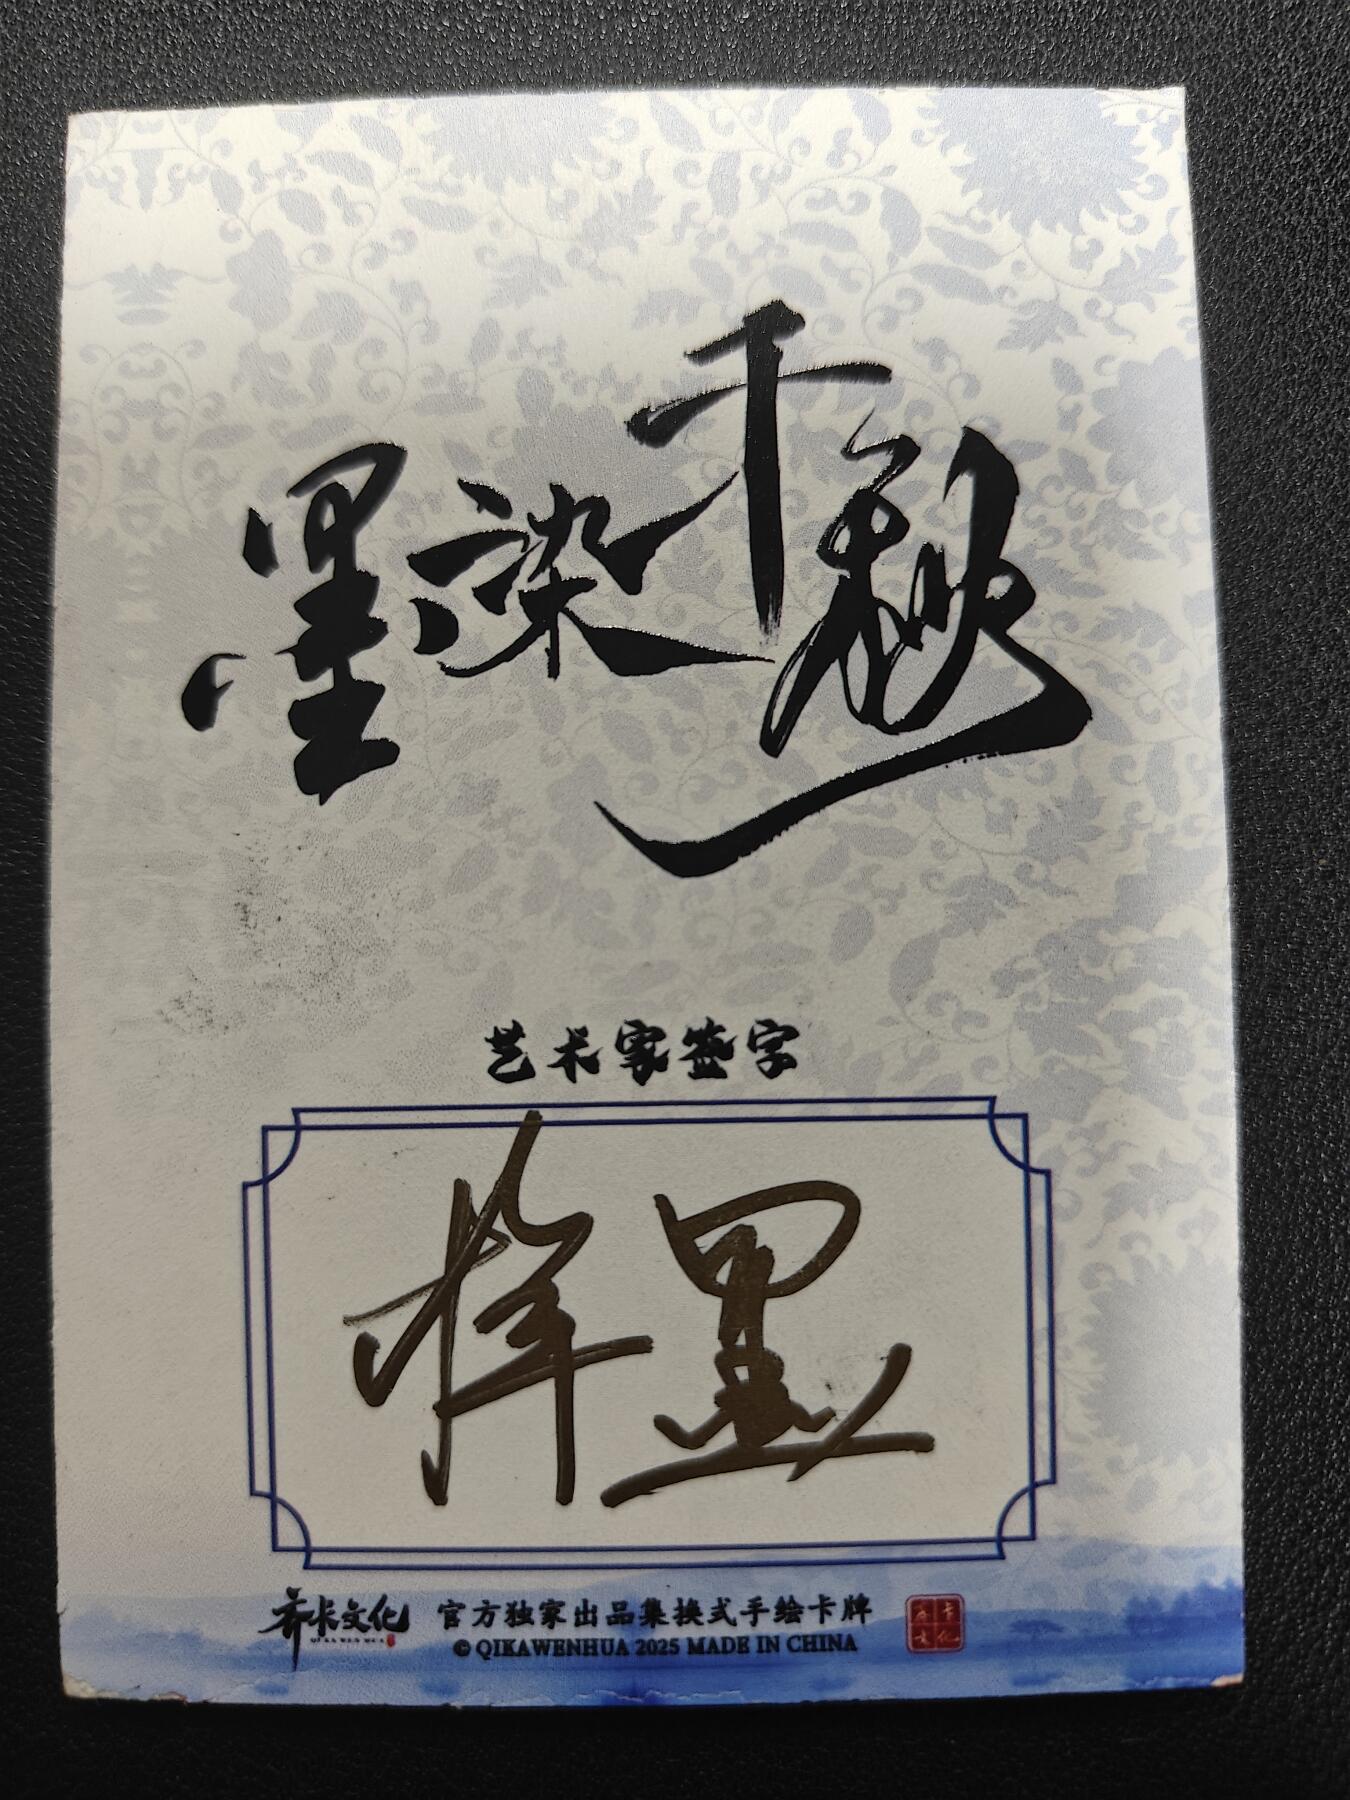 墨染千秋
艺术家签字
梓墨
齐卡文化
QI KA WEN HUA
官方独家出品集换式手绘卡牌
© QIKAWENHUA 2025 MADE IN CHINA